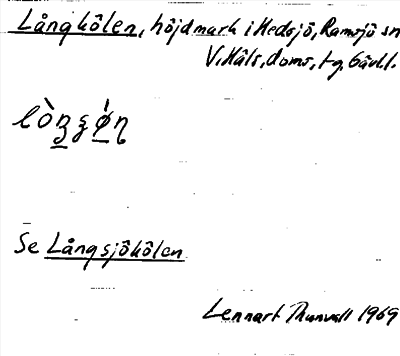 Långkölen, höjdmark i Hedsjö, Ramsjö sn
V. Häls. doms, tg. Gävl.
Se Långsjökölen
Lennart Thunvall 1969